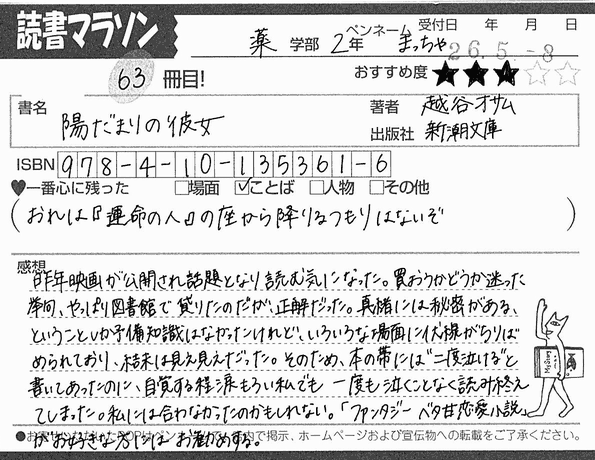 読書マラソン
薬 学部 2年 ペンネーム まっちゃ 受付日 年 月 日
26.5.-8
63 冊目! おすすめ度 ★★★☆☆
書名 陽だまりの彼女 著者 越谷オサム
出版社 新潮文庫
ISBN 978-4-10-135361-6
♥一番心に残った □場面 ☑ことば □人物 □その他
(おれは『運命の人』の座から降りるつもりはないぞ)
感想
昨年映画が公開され話題となり読む気になった。買おうかどうか迷った
挙句、やっぱり図書館で貸りたのだが、正解だった。真緒には秘密がある、
ということしか予備知識はなかったけれど、いろいろな場面に伏線がちりば
められており、結末は見え見えだった。そのため、本の帯には"二度泣ける"と
書いてあったのに、自覚する程涙もろい私でも一度も泣くことなく読み終え
てしまった。私には合わなかったのかもしれない。「ファンタジーベタ甘恋愛小説」
がお好きな方にはお勧めする。
●お寄せいただいたPOPはペンネームで店内で掲示、ホームページおよび宣伝物への転載をご了承ください。